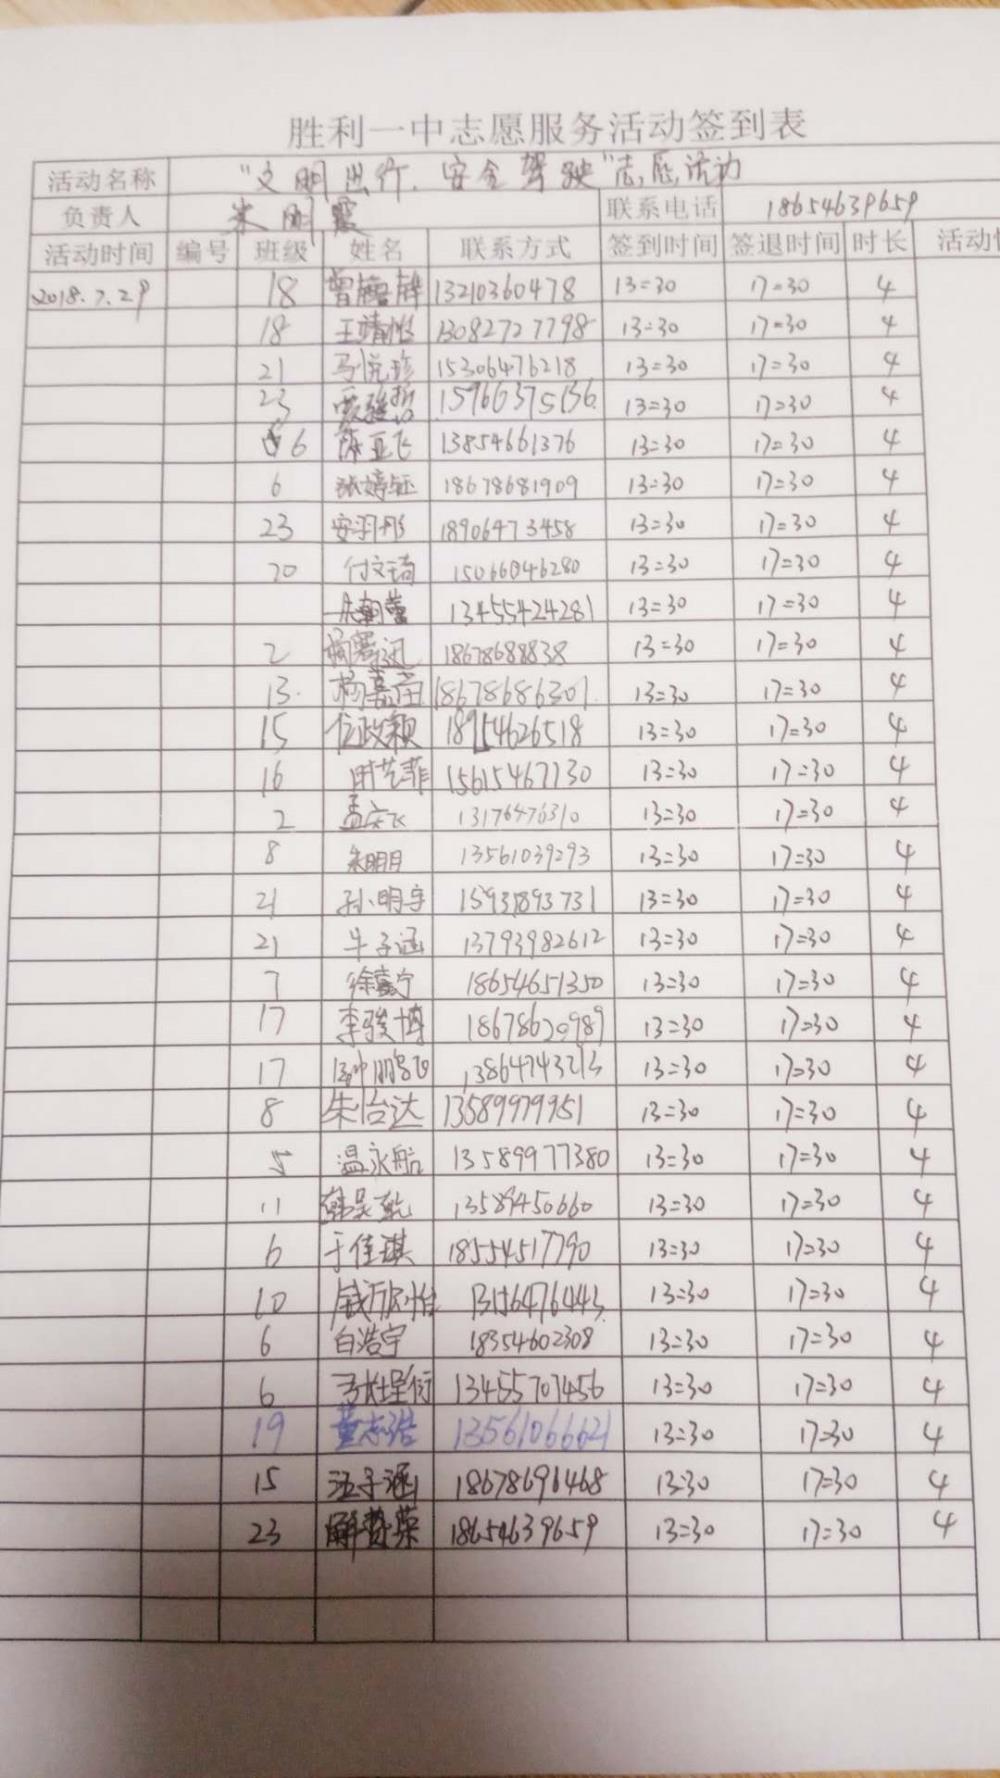 胜利一中志愿服务活动签到表
活动名称 "文明出行、安全驾驶"志愿活动
负责人 朱明霞 联系电话 18654639659
活动时间 编号 班级 姓名 联系方式 签到时间 签退时间 时长 活动
2018.7.29 18 13210360478 13=30 17=30 4
18 王靖怡 13082727798 13=30 17=30 4
21 马悦珍 15306476218 13=30 17=30 4
23 13=30 17=30 4
6 陈亚飞 13854661376 13=30 17=30 4
6 张婷钰 18678681909 13=30 17=30 4
23 安羽彤 18906473458 13=30 17=30 4
20 付文琦 15066046280 13=30 17=30 4
13455424281 13=30 17=30 4
2 18678688838 13=30 17=30 4
13 杨嘉苗 18678686301 13=30 17=30 4
15 任政颖 18954626518 13=30 17=30 4
16 时艺菲 15615467130 13=30 17=30 4
2 孟庆飞 13176476310 13=30 17=30 4
8 朱明月 13561039293 13=30 17=30 4
21 孙明宇 15931893731 13=30 17=30 4
21 牛子涵 13793982612 13=30 17=30 4
7 徐嘉宁 18654651350 13=30 17=30 4
17 李骏博 18678620989 13=30 17=30 4
17 13864743213 13=30 17=30 4
8 朱怡达 13589979951 13=30 17=30 4
5 温永航 13589977380 13=30 17=30 4
11 韩昊乾 13589450660 13=30 17=30 4
6 于佳琪 18554517790 13=30 17=30 4
10 13156476443 13=30 17=30 4
6 白浩宇 18354602308 13=30 17=30 4
6 13455707456 13=30 17=30 4
19 董志浩 13561066621 13=30 17=30 4
15 汪子涵 18678696468 13=30 17=30 4
23 18654639659 13=30 17=30 4